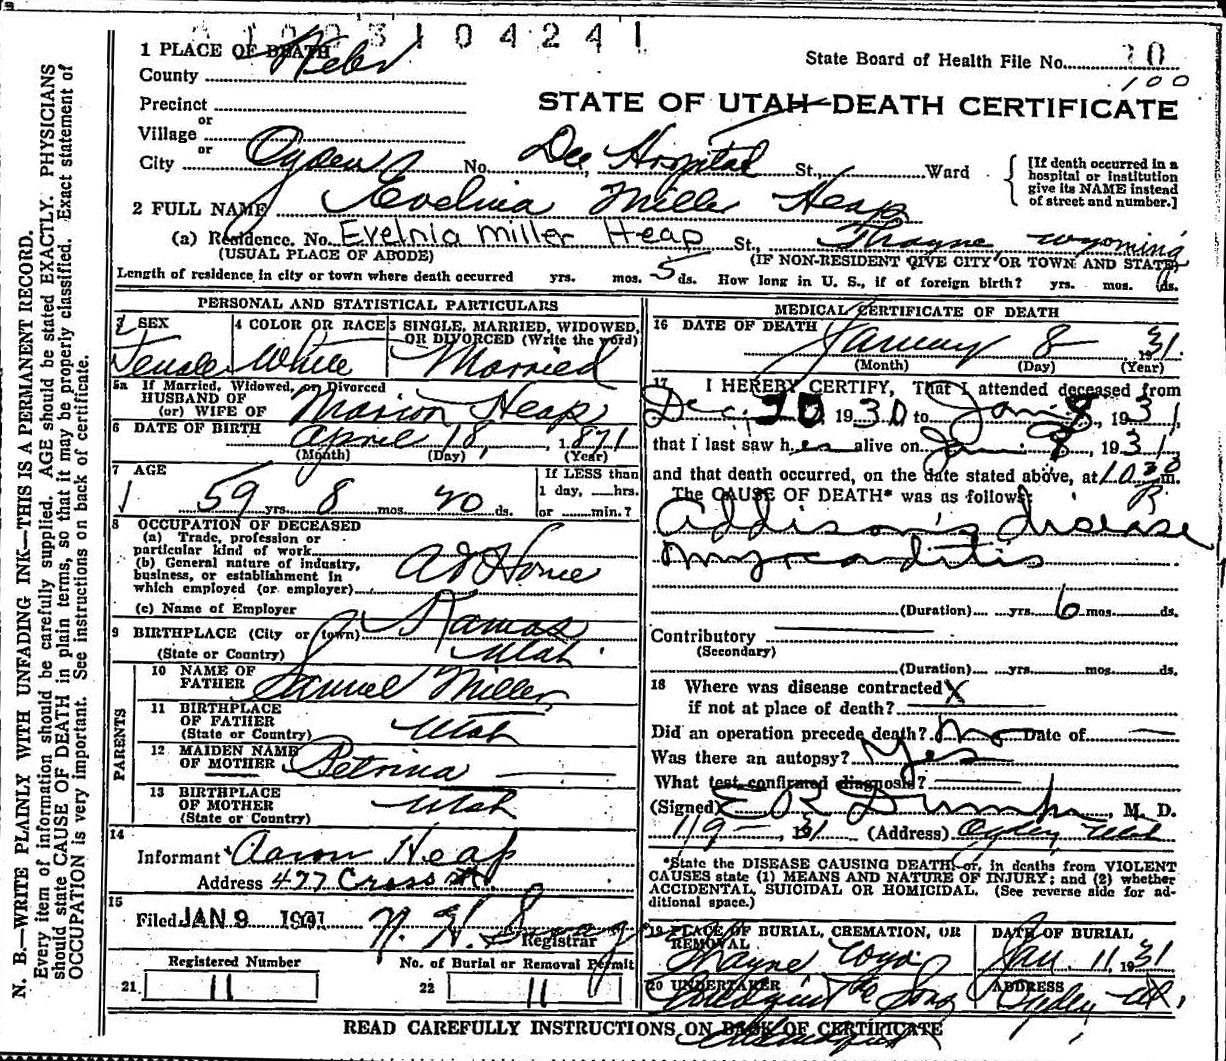 31 04241
1 PLACE OF DEATH
State Board of Health File No. 10
100
County Weber
STATE OF UTAH—DEATH CERTIFICATE
Precinct
or
Village
or
City Ogden No. Dee Hospital St., Ward
[If death occurred in a hospital or institution give its NAME instead of street and number.]
2 FULL NAME Evelina Miller Heap
(a) Residence. No. Evelnia Miller Heap St., Thayne, Wyoming
(USUAL PLACE OF ABODE) (IF NON-RESIDENT GIVE CITY OR TOWN AND STATE)
Length of residence in city or town where death occurred yrs. mos. 5 ds. How long in U. S., if of foreign birth? yrs. mos. ds.
PERSONAL AND STATISTICAL PARTICULARS
3 SEX 4 COLOR OR RACE 5 SINGLE, MARRIED, WIDOWED, OR DIVORCED (Write the word)
Female White Married
5a If Married, Widowed, or Divorced
HUSBAND OF
(or) WIFE OF Marion Heap
6 DATE OF BIRTH April 18, 1871
(Month) (Day) (Year)
7 AGE If LESS than
59 yrs. 8 mos. 20 ds. 1 day, hrs.
or min.?
8 OCCUPATION OF DECEASED
(a) Trade, profession or
particular kind of work
(b) General nature of industry,
business, or establishment in
which employed (or employer) At Home
(c) Name of Employer
9 BIRTHPLACE (City or town) Kamas
(State or Country) Utah
PARENTS
10 NAME OF
FATHER Samuel Miller
11 BIRTHPLACE
OF FATHER
(State or Country) Utah
12 MAIDEN NAME
OF MOTHER Petrina
13 BIRTHPLACE
OF MOTHER
(State or Country) Utah
14
Informant Aaron Heap
Address 477 Cross St.
15
Filed JAN 9 1931
Registrar
Registered Number No. of Burial or Removal Permit
21. 11 22 11
MEDICAL CERTIFICATE OF DEATH
16 DATE OF DEATH January 8 1931
(Month) (Day) (Year)
17 I HEREBY CERTIFY, That I attended deceased from
Dec. 1930 to Jan. 8, 1931,
that I last saw her alive on Jan. 8, 1931
and that death occurred, on the date stated above, at 10 30 P m.
The CAUSE OF DEATH* was as follows:
Addison's disease
Myocarditis
(Duration) yrs. 6 mos. ds.
Contributory
(Secondary)
(Duration) yrs. mos. ds.
18 Where was disease contracted X
if not at place of death?
Did an operation precede death? No Date of
Was there an autopsy? Yes
What test confirmed diagnosis?
(Signed) M. D.
1/9 - 1931 (Address) Ogden Utah
*State the DISEASE CAUSING DEATH, or, in deaths from VIOLENT
CAUSES state (1) MEANS AND NATURE OF INJURY; and (2) whether
ACCIDENTAL, SUICIDAL OR HOMICIDAL. (See reverse side for ad-
ditional space.)
19 PLACE OF BURIAL, CREMATION, OR
REMOVAL
Thayne, Wyo.
DATE OF BURIAL
Jan. 11, 1931
20 UNDERTAKER
& Sons
ADDRESS
Ogden Ut.
READ CAREFULLY INSTRUCTIONS ON BACK OF CERTIFICATE
N. B.—WRITE PLAINLY WITH UNFADING INK—THIS IS A PERMANENT RECORD.
Every item of information should be carefully supplied. AGE should be stated EXACTLY. PHYSICIANS
should state CAUSE OF DEATH in plain terms, so that it may be properly classified. Exact statement of
OCCUPATION is very important. See instructions on back of certificate.